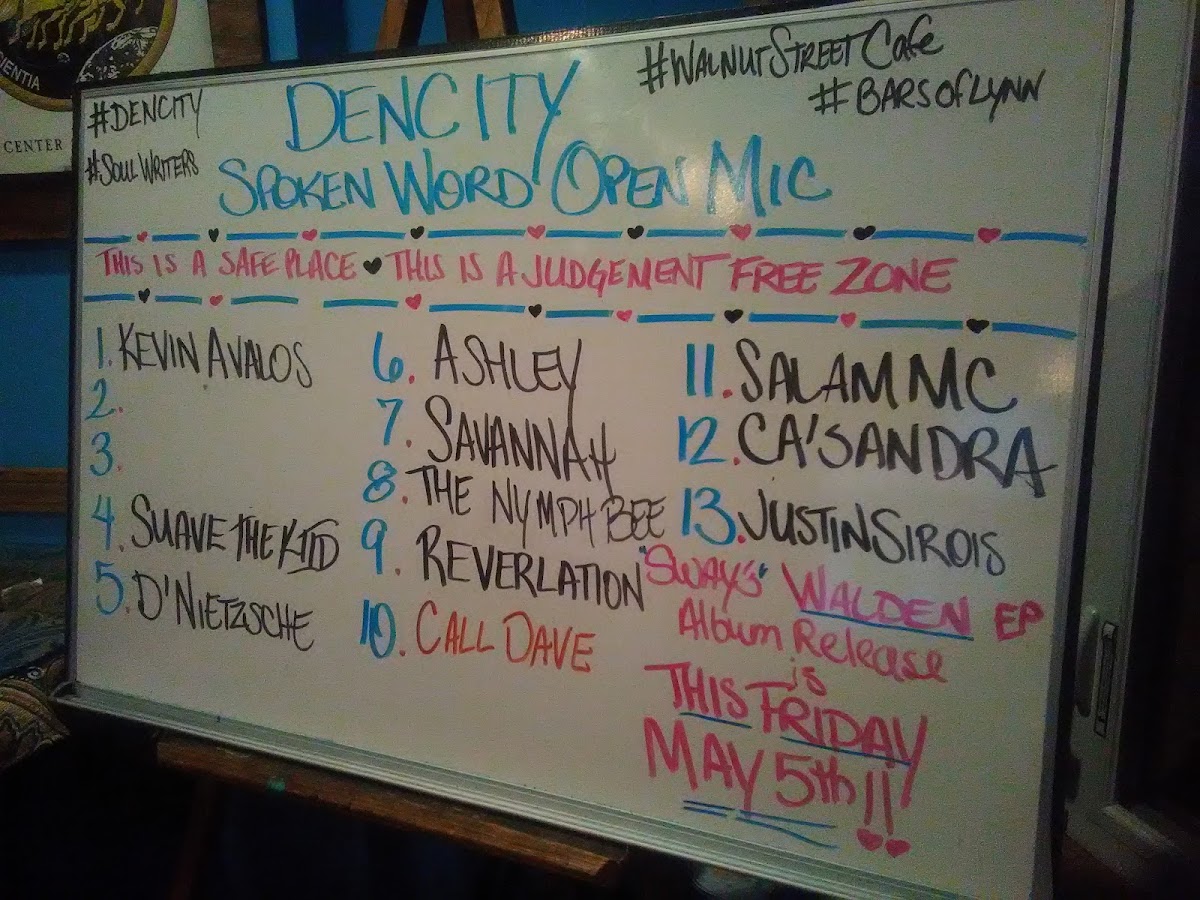 ENTIA
CENTER
#DENCITY
#SOUL WRITERS
DENCITY
SPOKEN WORD OPEN MIC
#WALNUT STREET CAFE
#BARSOFLYNN
THIS IS A SAFE PLACE ♥ THIS IS A JUDGEMENT FREE ZONE
1. KEVIN AVALOS
2.
3.
4. SUAVE THE KIID
5. D'NIETZSCHE
6. ASHLEY
7. SAVANNAH
8. THE NYMPH BEE
9. REVERLATION
10. CALL DAVE
11. SALAM MC
12. CA'SANDRA
13. JUSTIN SIROIS
"SWAY'S" WALDEN EP
Album Release
is
THIS FRIDAY
MAY 5th!!